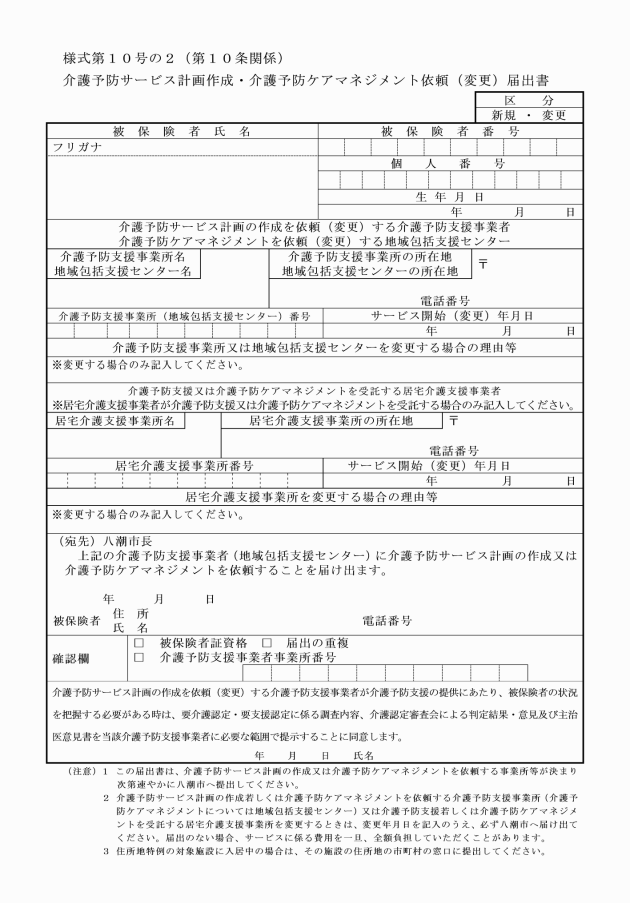 様式第１０号の２（第１０条関係）
介護予防サービス計画作成・介護予防ケアマネジメント依頼（変更）届出書
区　　分
新規 ・ 変更
被　保　険　者　氏　名
被　保　険　者　番　号
フリガナ
個　人　番　号
生 年 月 日
年　　　月　　　日
介護予防サービス計画の作成を依頼（変更）する介護予防支援事業者
介護予防ケアマネジメントを依頼（変更）する地域包括支援センター
介護予防支援事業所名
地域包括支援センター名
介護予防支援事業所の所在地
地域包括支援センターの所在地
〒
電話番号
介護予防支援事業所（地域包括支援センター）番号
サービス開始（変更）年月日
年　　　月　　　日
介護予防支援事業所又は地域包括支援センターを変更する場合の理由等
※変更する場合のみ記入してください。
介護予防支援又は介護予防ケアマネジメントを受託する居宅介護支援事業者
※居宅介護支援事業者が介護予防支援又は介護予防ケアマネジメントを受託する場合のみ記入してください。
居宅介護支援事業所名
居宅介護支援事業所の所在地
〒
電話番号
居宅介護支援事業所番号
サービス開始（変更）年月日
年　　　月　　　日
居宅介護支援事業所を変更する場合の理由等
※変更する場合のみ記入してください。
（宛先）八潮市長
上記の介護予防支援事業者（地域包括支援センター）に介護予防サービス計画の作成又は
介護予防ケアマネジメントを依頼することを届け出ます。
年　　　月　　　日
被保険者
住　所
氏　名
電話番号
確認欄
□　被保険者証資格　□　届出の重複
□　介護予防支援事業者事業所番号
介護予防サービス計画の作成を依頼（変更）する介護予防支援事業者が介護予防支援の提供にあたり、被保険者の状況
を把握する必要がある時は、要介護認定・要支援認定に係る調査内容、介護認定審査会による判定結果・意見及び主治
医意見書を当該介護予防支援事業者に必要な範囲で提示することに同意します。
年　　月　　日　　氏名
（注意）１　この届出書は、介護予防サービス計画の作成又は介護予防ケアマネジメントを依頼する事業所等が決まり
次第速やかに八潮市へ提出してください。
２　介護予防サービス計画の作成若しくは介護予防ケアマネジメントを依頼する介護予防支援事業所（介護予
防ケアマネジメントについては地域包括支援センター）又は介護予防支援若しくは介護予防ケアマネジメ
ントを受託する居宅介護支援事業所を変更するときは、変更年月日を記入のうえ、必ず八潮市へ届け出て
ください。届出のない場合、サービスに係る費用を一旦、全額負担していただくことがあります。
３　住所地特例の対象施設に入居中の場合は、その施設の住所地の市町村の窓口に提出してください。